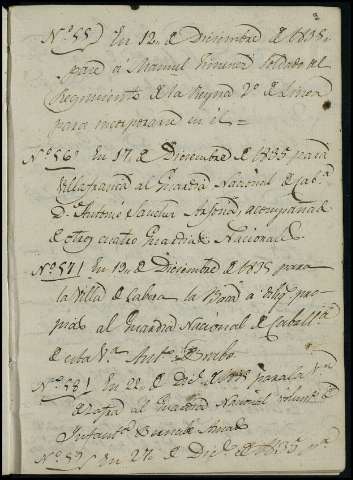 3
Nº 55) En 12 de Diciembre de 1835,
pase a Manuel Gimenez soldado del
Regimiento de la Reyna 2º de Linea
para incorporarse en el =
Nº 56) En 17 de Diciembre de 1835 para
Villafranca al Guardia Nacional de Cabª
Dⁿ Antonio Sanchez Arjona, acompañado
de otros cuatro Guardias Nacionales.
Nº 57) En 19 de Diciembre de 1835 para
la Villa de Cabeza la
al Guardia Nacional de Caballª
de esta Vª Antº
Nº 58) En 22 de Dicᵉ de 1835 para la Vª
de Zafra al Guardia Nacional volunt° de
Infantª
Nº 59) En 27 de Dicᵉ de 1835, pª